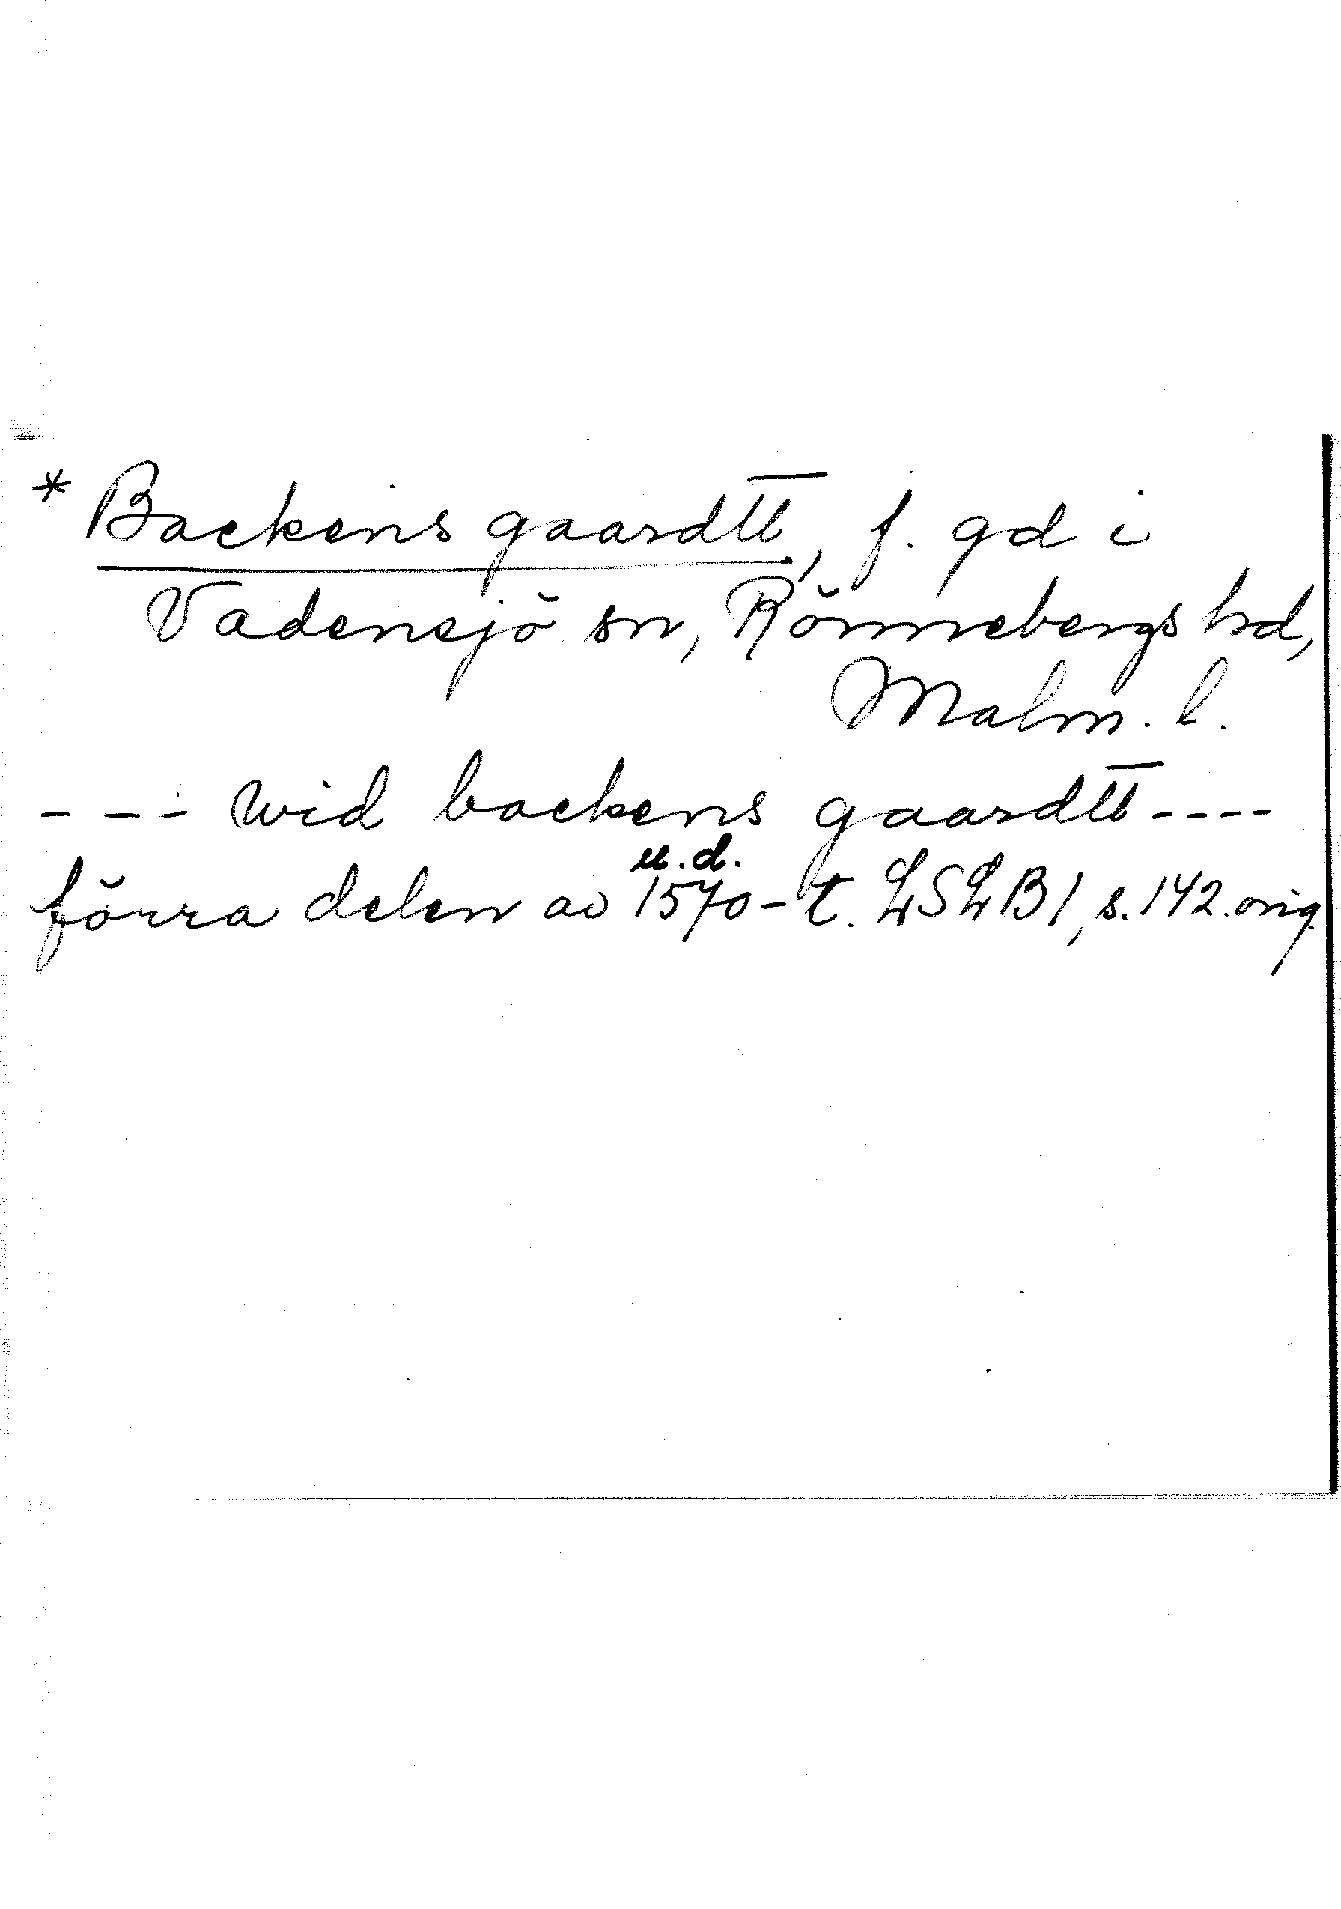 * Backens gaardtt, f. gd i
Vadensjö sn, Rönnebergs hd,
Malm. l.
--- wid backens gaardtt ----
u.d.
förra delen av 1570-t. LSLB1, s. 142. orig.